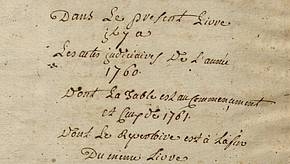 Dans Le present Livre
il y a
Les acts judiciaires De L'année
1760.
Dont La Table est au Commencement
et de 1761.
Dont Le Repertoire est à la fin
Du meme Livre